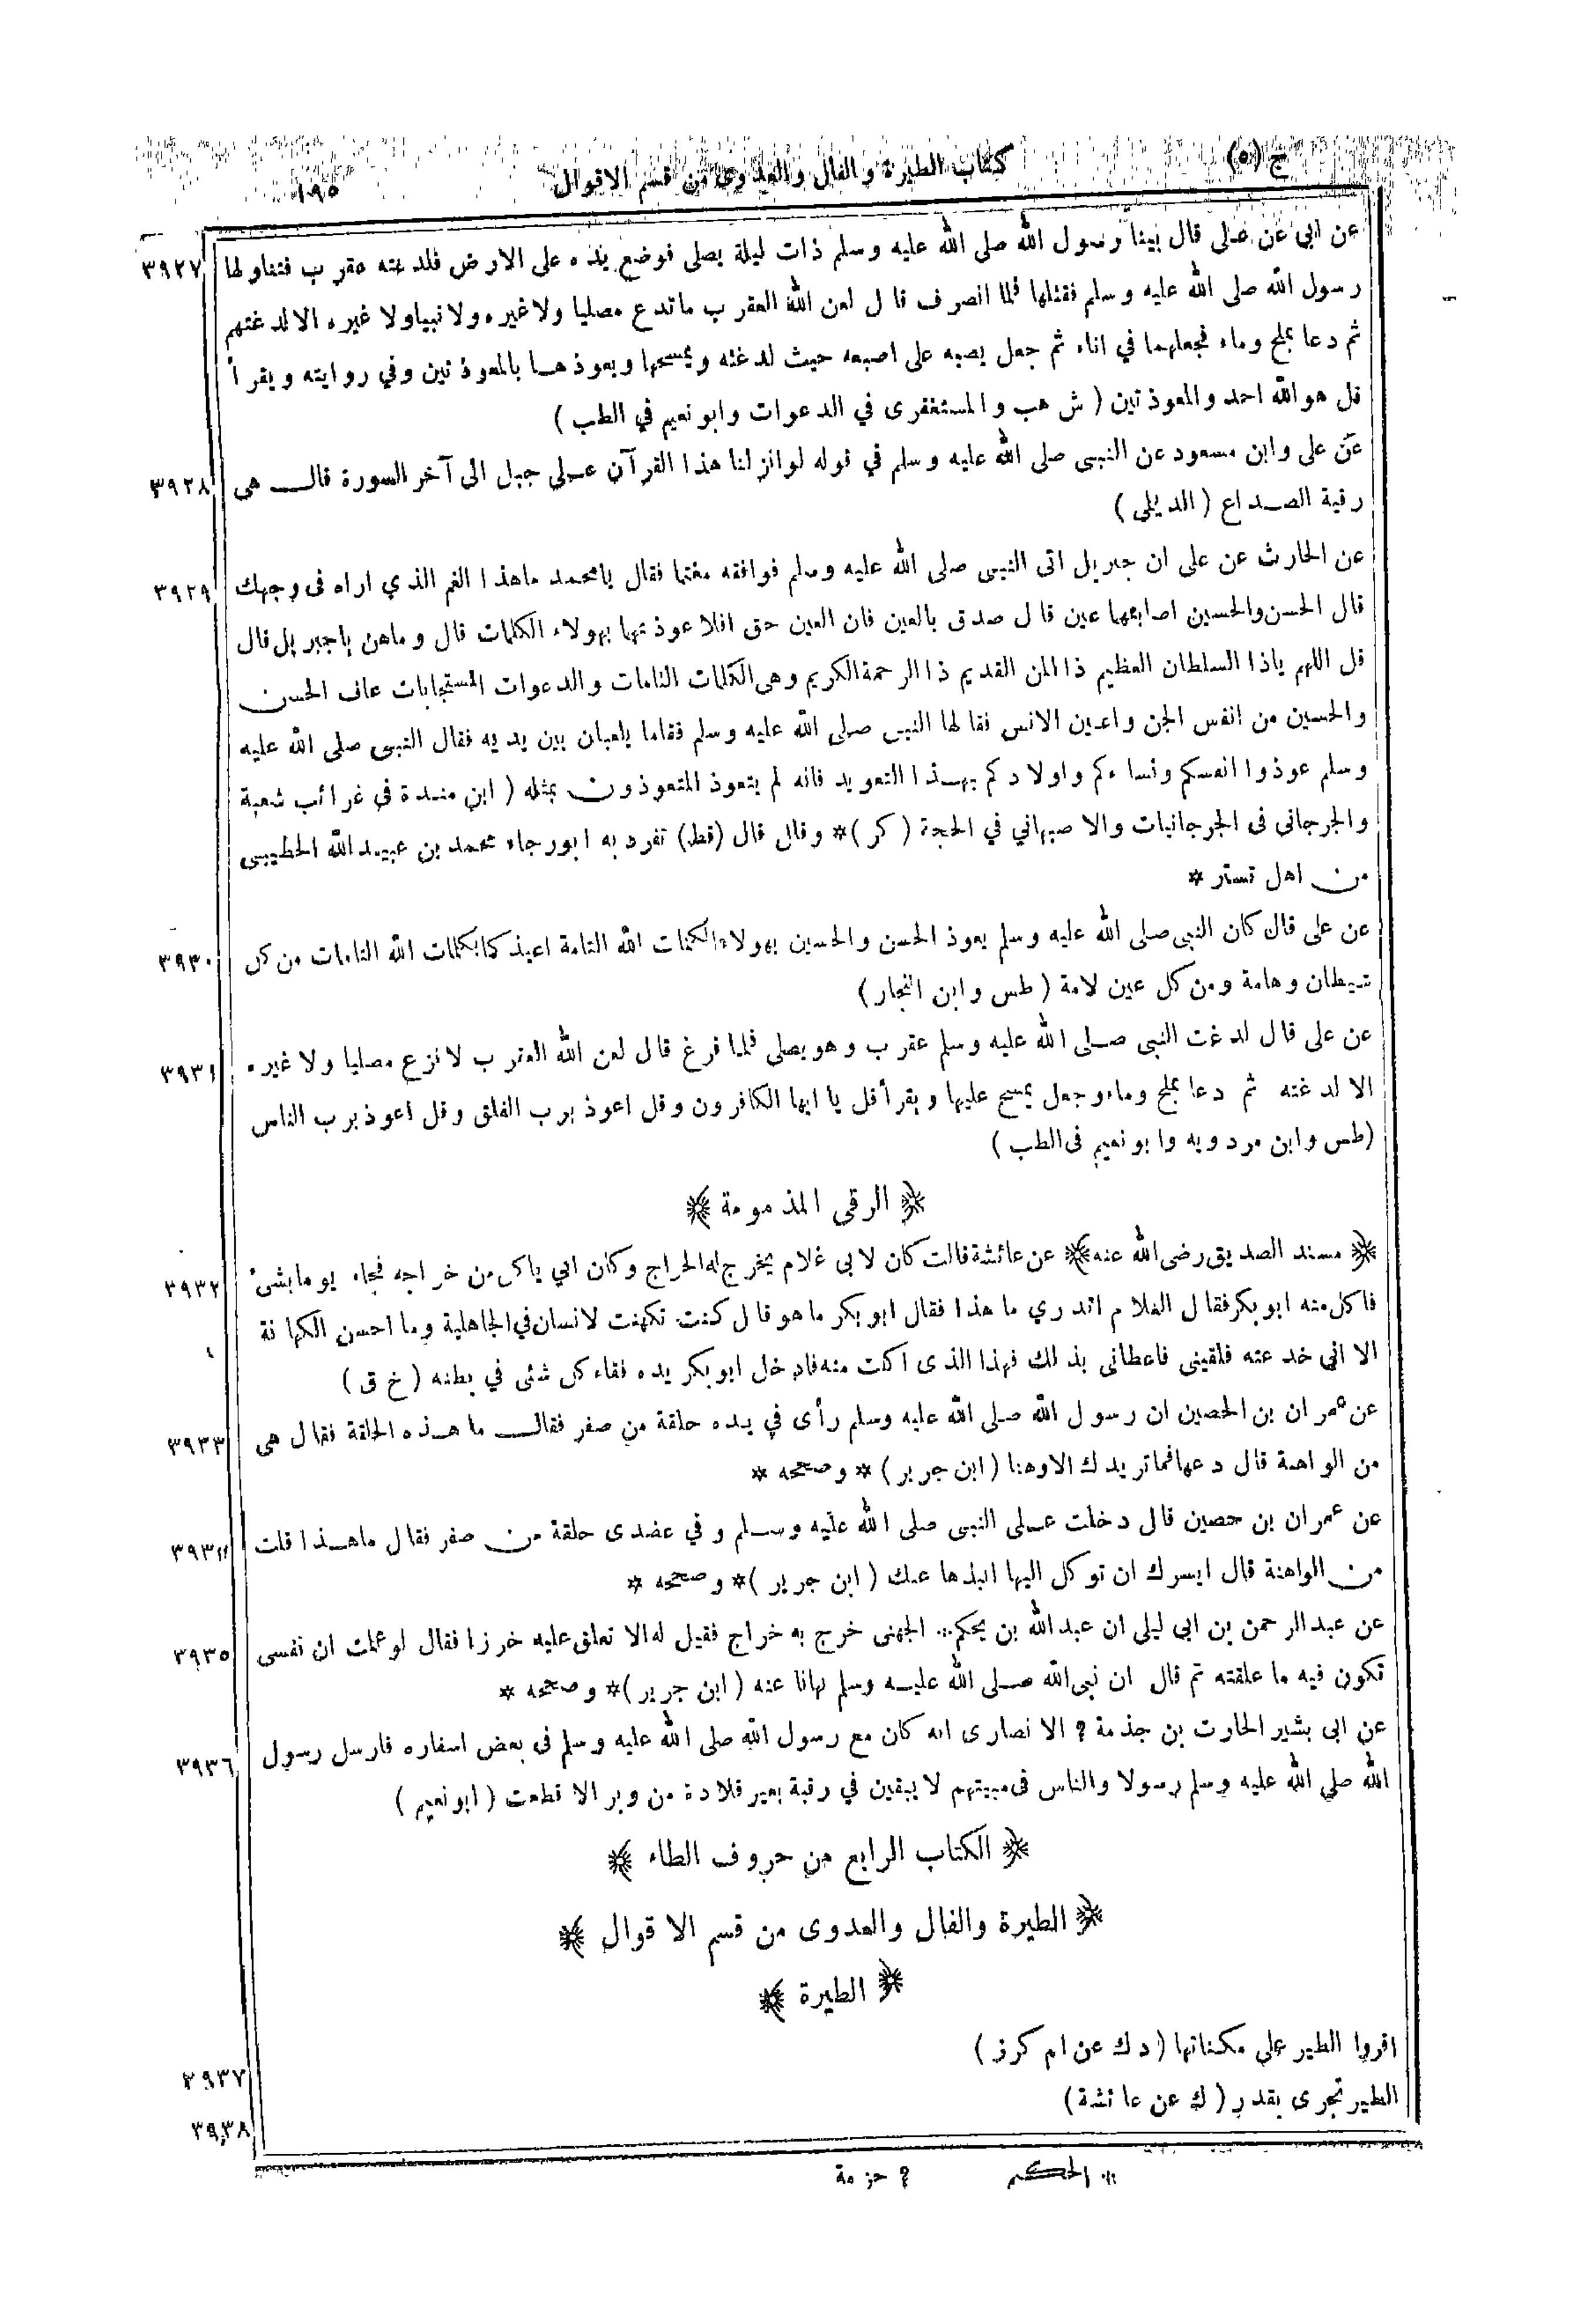 ج (٥)
كتاب الطيرة والفال والعدوى من قسم الاقوال
١٩٥
٣٩٢٧ عن ابى عن على قال بينا رسول الله صلى الله عليه وسلم ذات ليلة يصلى فوضع يده على الارض فلدغته عقرب فتناولها
رسول الله صلى الله عليه وسلم فقتلها فلما انصرف قال لعن الله العقرب ماتدع مصليا ولا غيره ولا نبيا ولا غيره الا لدغتهم
ثم دعا بملح وماء فجعلهما في اناء ثم جعل يصبه على اصبعه حيث لدغته ويمسحها ويعوذها بالمعوذتين وفي روايته ويقرأ
قل هو الله احد والمعوذتين ( ش هب والمستغفرى في الدعوات وابو نعيم في الطب )
٣٩٢٨ عن على وابن مسعود عن النبى صلى الله عليه وسلم في قوله لوانزلنا هذا القرآن على جبل الى آخر السورة قال هى
رقية الصداع ( الديلمى )
٣٩٢٩ عن الحارث عن على ان جبريل اتى النبى صلى الله عليه وسلم فوافقه مغتما فقال يا محمد ماهذا الغم الذي اراه فى وجهك
قال الحسن والحسين اصابهما عين قال صدق بالعين فان العين حق افلا عوذتهما بهولاء الكلمات قال وماهن يا جبريل قال
قل اللهم ياذا السلطان العظيم ذا المن القديم ذا الرحمة الكريم وهى الكلمات التامات والدعوات المستجابات عاف الحسن
والحسين من انفس الجن واعين الانس فقالها النبى صلى الله عليه وسلم فقاما يلعبان بين يديه فقال النبى صلى الله عليه
وسلم عوذوا انفسكم ونساءكم واولادكم بهذا التعويذ فانه لم يتعوذ المتعوذون بمثله ( ابن مندة في غرائب شعبة
والجرجانى فى الجرجانيات والاصبهاني في الحجة ( كر )* وقال قال (قط) تفرد به ابو رجاء محمد بن عبيد الله الخطيبى
من اهل تستر *
٣٩٣٠ عن على قال كان النبى صلى الله عليه وسلم يعوذ الحسن والحسين بهولاء الكلمات الله التامة اعيذكما بكلمات الله التامات من كل
شيطان وهامة ومن كل عين لامة ( طس وابن النجار )
٣٩٣١ عن على قال لدغت النبى صلى الله عليه وسلم عقرب وهو يصلى فلما فرغ قال لعن الله العقرب لا تزع مصليا ولا غيره
الا لدغته ثم دعا بملح وماء وجعل يمسح عليها ويقرأ قل يا ايها الكافرون وقل اعوذ برب الفلق وقل اعوذ برب الناس
(طس وابن مردويه وابو نعيم فى الطب )
﴿ الرقى المذمومة ﴾
٣٩٣٢ ﴿ مسند الصديق رضى الله عنه ﴾ عن عائشة قالت كان لابى غلام يخرج له الخراج وكان ابي ياكل من خراجه فجاء يوما بشئ
فاكل منه ابو بكر فقال الغلام اتدري ما هذا فقال ابو بكر ما هو قال كنت تكهنت لانسان في الجاهلية وما احسن الكهانة
الا اني خدعته فلقينى فاعطانى بذلك فهذا الذى اكلت منه فادخل ابو بكر يده فقاء كل شئى في بطنه ( خ ق )
٣٩٣٣ عن عمران بن الحصين ان رسول الله صلى الله عليه وسلم رأى في يده حلقة من صفر فقال ما هذه الحلقة فقال هى
من الواهنة قال دعها فما تريدك الا وهنا ( ابن جرير ) * وصححه *
٣٩٣٤ عن عمران بن حصين قال دخلت على النبى صلى الله عليه وسلم وفي عضدى حلقة من صفر فقال ماهذا قلت
من الواهنة قال ايسرك ان توكل اليها انبذها عنك ( ابن جرير )* وصححه *
٣٩٣٥ عن عبد الرحمن بن ابى ليلى ان عبد الله بن يحكم؞ الجهنى خرج به خراج فقيل له الا تعلق عليه خرزا فقال لو علمت ان نفسى
تكون فيه ما علقته ثم قال ان نبى الله صلى الله عليه وسلم نهانا عنه ( ابن جرير )* وصححه *
٣٩٣٦ عن ابى بشير الحارث بن جذمة ؟ الانصارى انه كان مع رسول الله صلى الله عليه وسلم فى بعض اسفاره فارسل رسول
الله صلى الله عليه وسلم رسولا والناس فى مبيتهم لا يبقين في رقبة بعير قلادة من وبر الا قطعت ( ابو نعيم )
﴿ الكتاب الرابع من حروف الطاء ﴾
﴿ الطيرة والفال والعدوى من قسم الاقوال ﴾
﴿ الطيرة ﴾
٣٩٣٧ اقروا الطير على مكناتها ( د ك عن ام كرز )
٣٩٣٨ الطير تجرى بقدر ( ك عن عائشة )
؞ الحكم ؟ حزمة